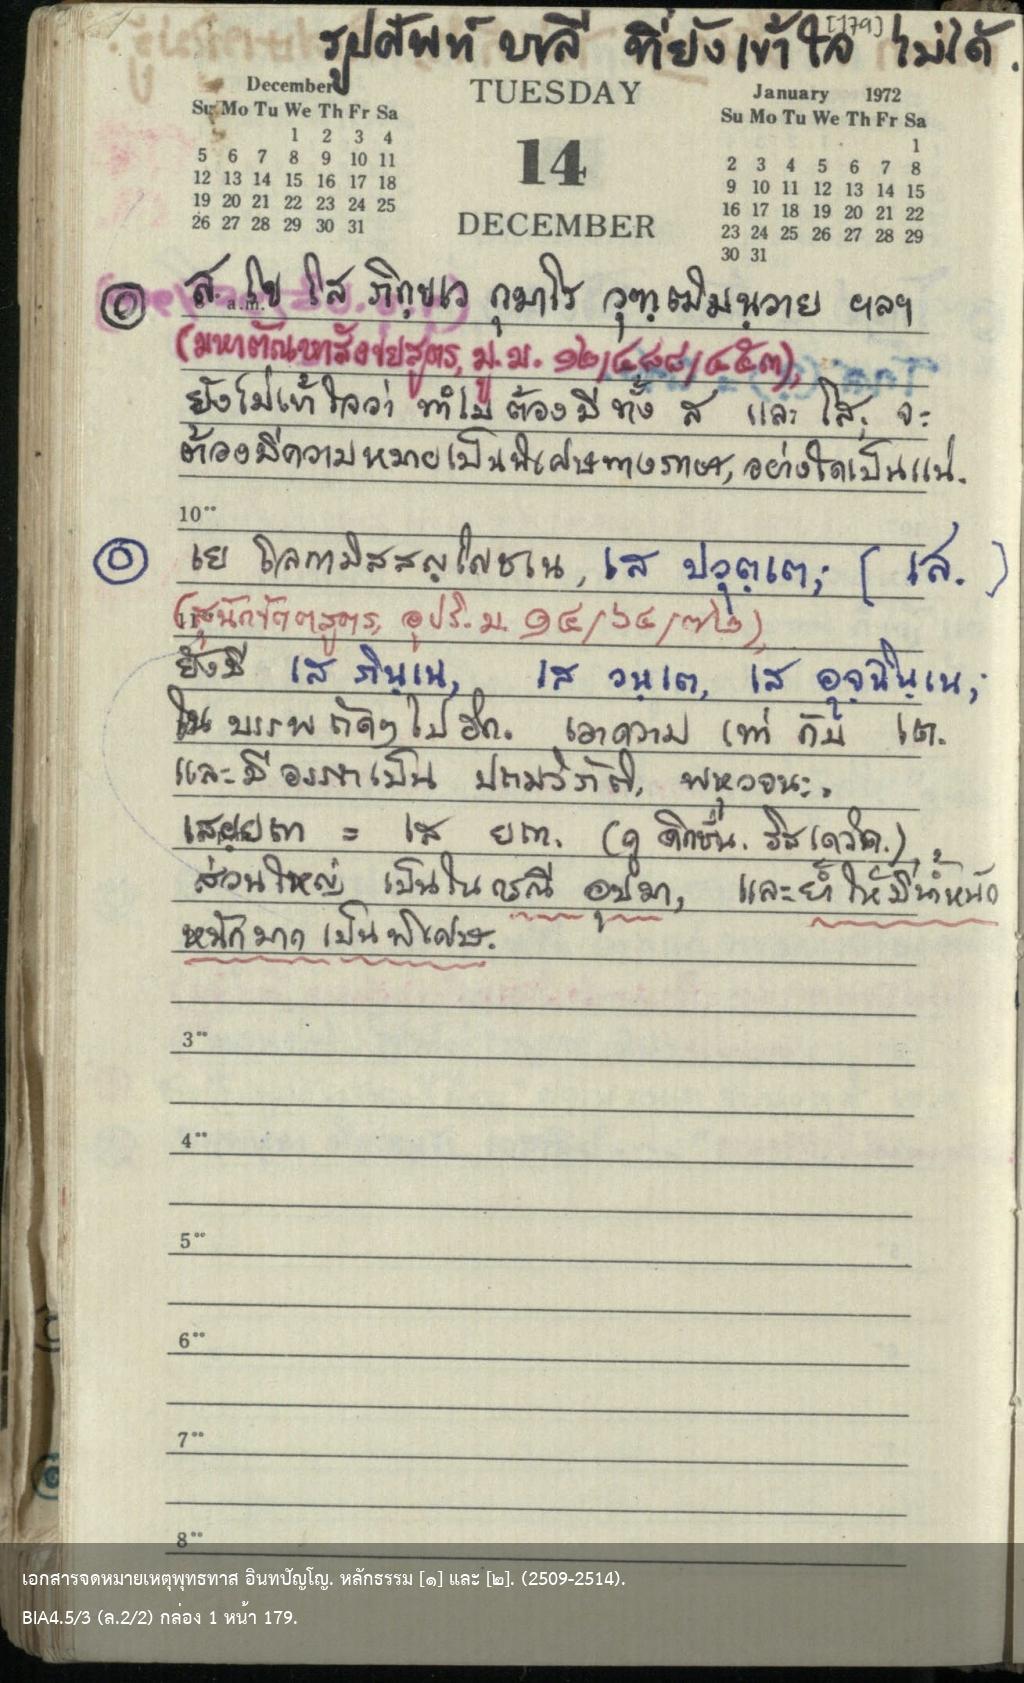 [179]
รูปศัพท์ บาลี ที่ยังเข้าใจ ไม่ได้.
December
Su Mo Tu We Th Fr Sa
1 2 3 4
5 6 7 8 9 10 11
12 13 14 15 16 17 18
19 20 21 22 23 24 25
26 27 28 29 30 31
TUESDAY
14
DECEMBER
January 1972
Su Mo Tu We Th Fr Sa
1
2 3 4 5 6 7 8
9 10 11 12 13 14 15
16 17 18 19 20 21 22
23 24 25 26 27 28 29
30 31
ส. โข โส ภิกฺขเว กุมาโร วุฑฺฒิมนฺวาย ฯลฯ
a.m.
(มหาตัณหาสังขยสูตร, มู.ม. ๑๒/๔๘๘/๔๕๓),
ยังไม่เข้าใจว่า ทำไมต้องมีทั้ง ส และ โส, จะ
ต้องมีความหมายเป็นพิเศษทางภาษา, อย่างใดเป็นแน่.
10°°
เย โลกามิสสญฺโญชเน, เส ปวุตฺเต; ( เส. )
(สุนักขัตตสูตร, อุปริ.ม. ๑๔/๖๔/๗๒),
ยังมี เส ภินฺเน, เส วนฺเต, เส อุจฺฉินฺเน;
ใน บรรพ ถัดๆ ไปอีก. เอาความ เท่า กับ เต.
และมี อรรถเป็น ปถมวิภัติ, พหุวจนะ.
เสยฺยถา = เส ยถา. (ดู ดิกชั่น. ริสเดวิด.)
ส่วนใหญ่ เป็นในกรณี อุปมา, และย้ำ ให้มีน้ำหนัก
หนักมาก เป็นพิเศษ.
3°°
4°°
5°°
6°°
7°°
8°°
เอกสารจดหมายเหตุพุทธทาส อินทปัญโญ. หลักธรรม [๑] และ [๒]. (2509-2514).
BIA4.5/3 (ล.2/2) กล่อง 1 หน้า 179.